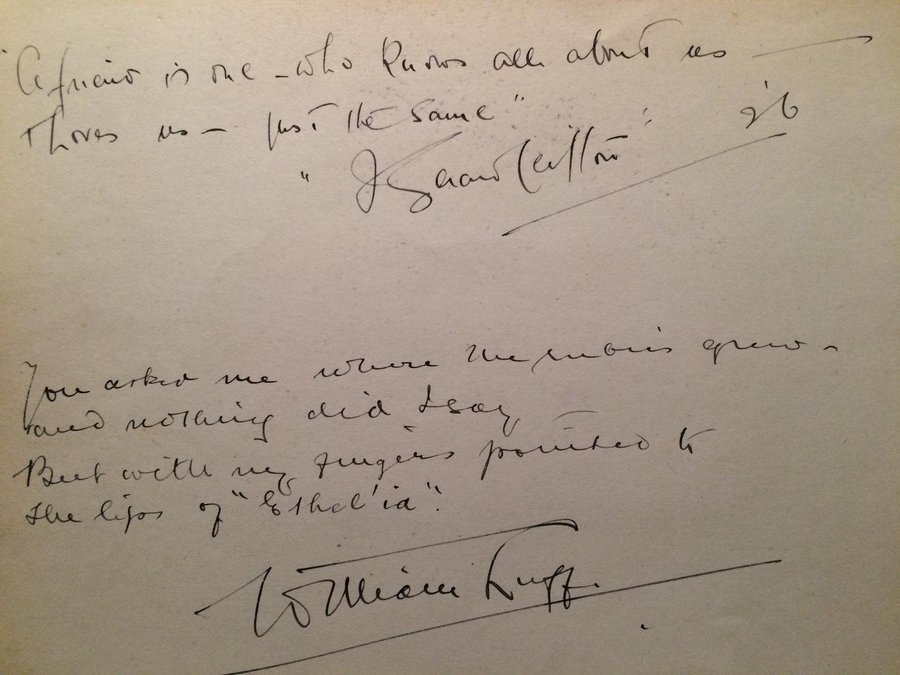 "A friend is one - who knows all about us —
& loves us — just the same"
"J Gerard Clifton" 26
You asked me where the roses grew -
and nothing did I say
But with my fingers pointed to
the lips of "Ethel'ia".
William Luff.